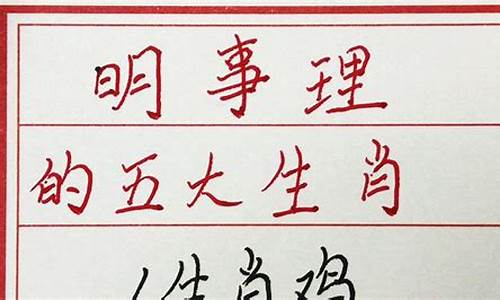 明事理
的五大生肖
1生肖鸡